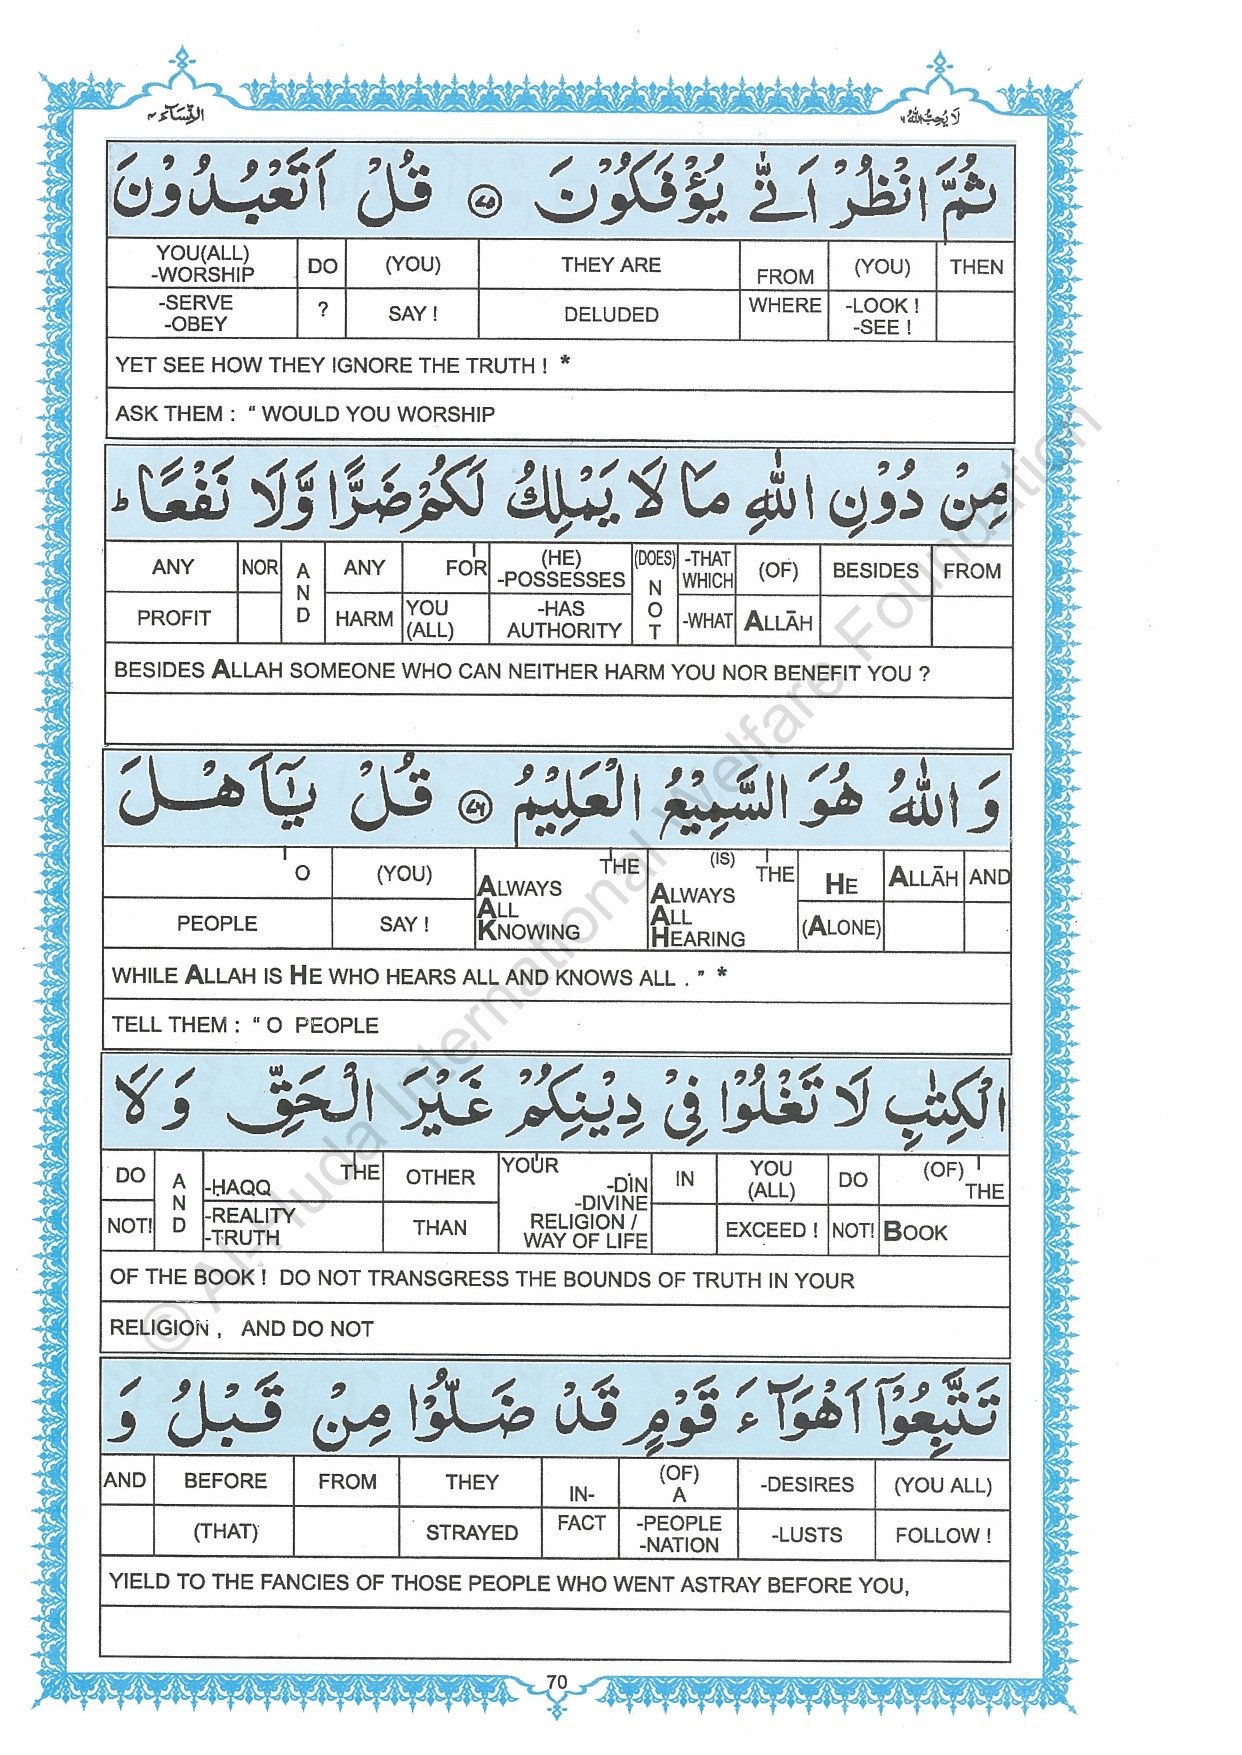 النِّسَآء ٤
لَا يُحِبُّ اللّٰهُ ٦
ثُمَّ انْظُرْ اَنّٰى يُؤْفَكُوْنَ ٧٥ قُلْ اَتَعْبُدُوْنَ
YOU(ALL) -WORSHIP DO (YOU) THEY ARE FROM (YOU) THEN
-SERVE -OBEY ? SAY ! DELUDED WHERE -LOOK ! -SEE !
YET SEE HOW THEY IGNORE THE TRUTH ! *
ASK THEM : " WOULD YOU WORSHIP
مِنْ دُوْنِ اللّٰهِ مَا لَا يَمْلِكُ لَكُمْ ضَرًّا وَّلَا نَفْعًا ؕ
ANY NOR AND ANY FOR (HE) -POSSESSES (DOES) NOT -THAT WHICH (OF) BESIDES FROM
PROFIT HARM YOU (ALL) -HAS AUTHORITY -WHAT ALLĀH
BESIDES ALLAH SOMEONE WHO CAN NEITHER HARM YOU NOR BENEFIT YOU ?
وَ اللّٰهُ هُوَ السَّمِيْعُ الْعَلِيْمُ ٧٦ قُلْ يٰۤاَهْلَ
O (YOU) THE ALWAYS ALL KNOWING (IS) THE ALWAYS ALL HEARING HE ALLĀH AND
PEOPLE SAY ! (ALONE)
WHILE ALLAH IS HE WHO HEARS ALL AND KNOWS ALL . " *
TELL THEM : " O PEOPLE
الْكِتٰبِ لَا تَغْلُوْا فِيْ دِيْنِكُمْ غَيْرَ الْحَقِّ وَلَا
DO AND THE -ḤAQQ OTHER YOUR -DĪN -DIVINE IN YOU (ALL) DO (OF) THE
NOT! -REALITY -TRUTH THAN RELIGION / WAY OF LIFE EXCEED ! NOT! BOOK
OF THE BOOK ! DO NOT TRANSGRESS THE BOUNDS OF TRUTH IN YOUR
RELIGION , AND DO NOT
تَتَّبِعُوْۤا اَهْوَآءَ قَوْمٍ قَدْ ضَلُّوْا مِنْ قَبْلُ وَ
AND BEFORE FROM THEY IN- (OF) A -DESIRES (YOU ALL)
(THAT) STRAYED FACT -PEOPLE -NATION -LUSTS FOLLOW !
YIELD TO THE FANCIES OF THOSE PEOPLE WHO WENT ASTRAY BEFORE YOU,
70
© Al-Huda International Welfare Foundation